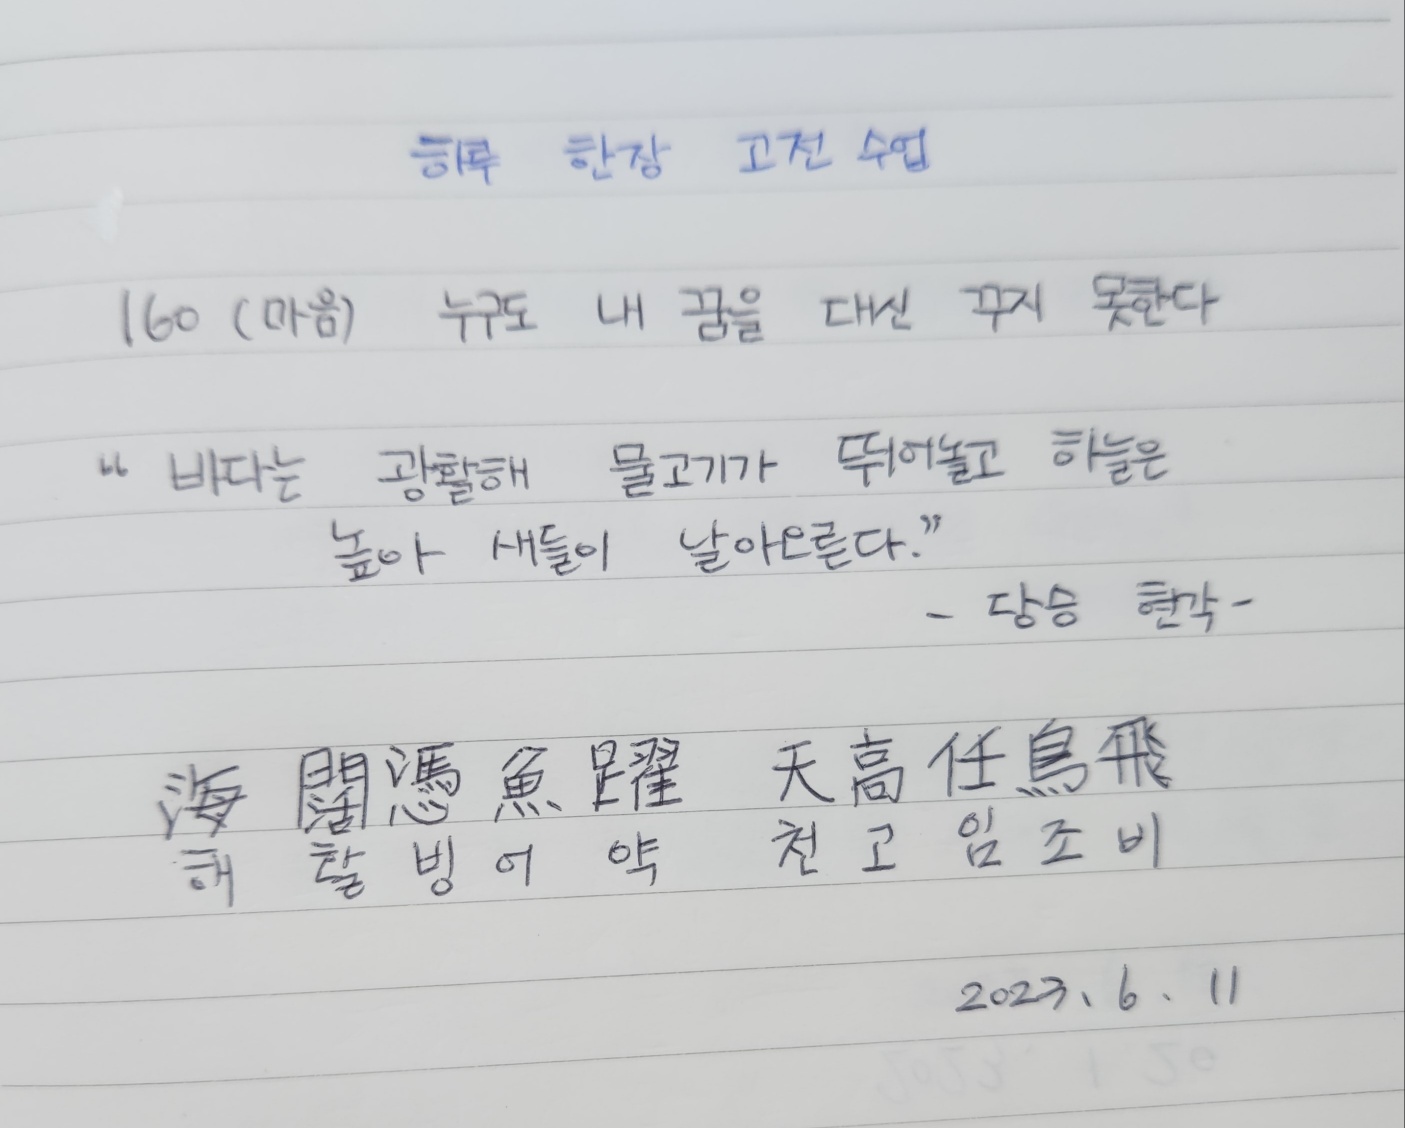 하루 한장 고전 수업
160 (마음) 누구도 내 꿈을 대신 꾸지 못한다
“ 바다는 광활해 물고기가 뛰어놀고 하늘은
높아 새들이 날아오른다.”
- 당승 현각 -
海 闊 憑 魚 躍 天 高 任 鳥 飛
해 활 빙 어 약 천 고 임 조 비
2023. 6. 11